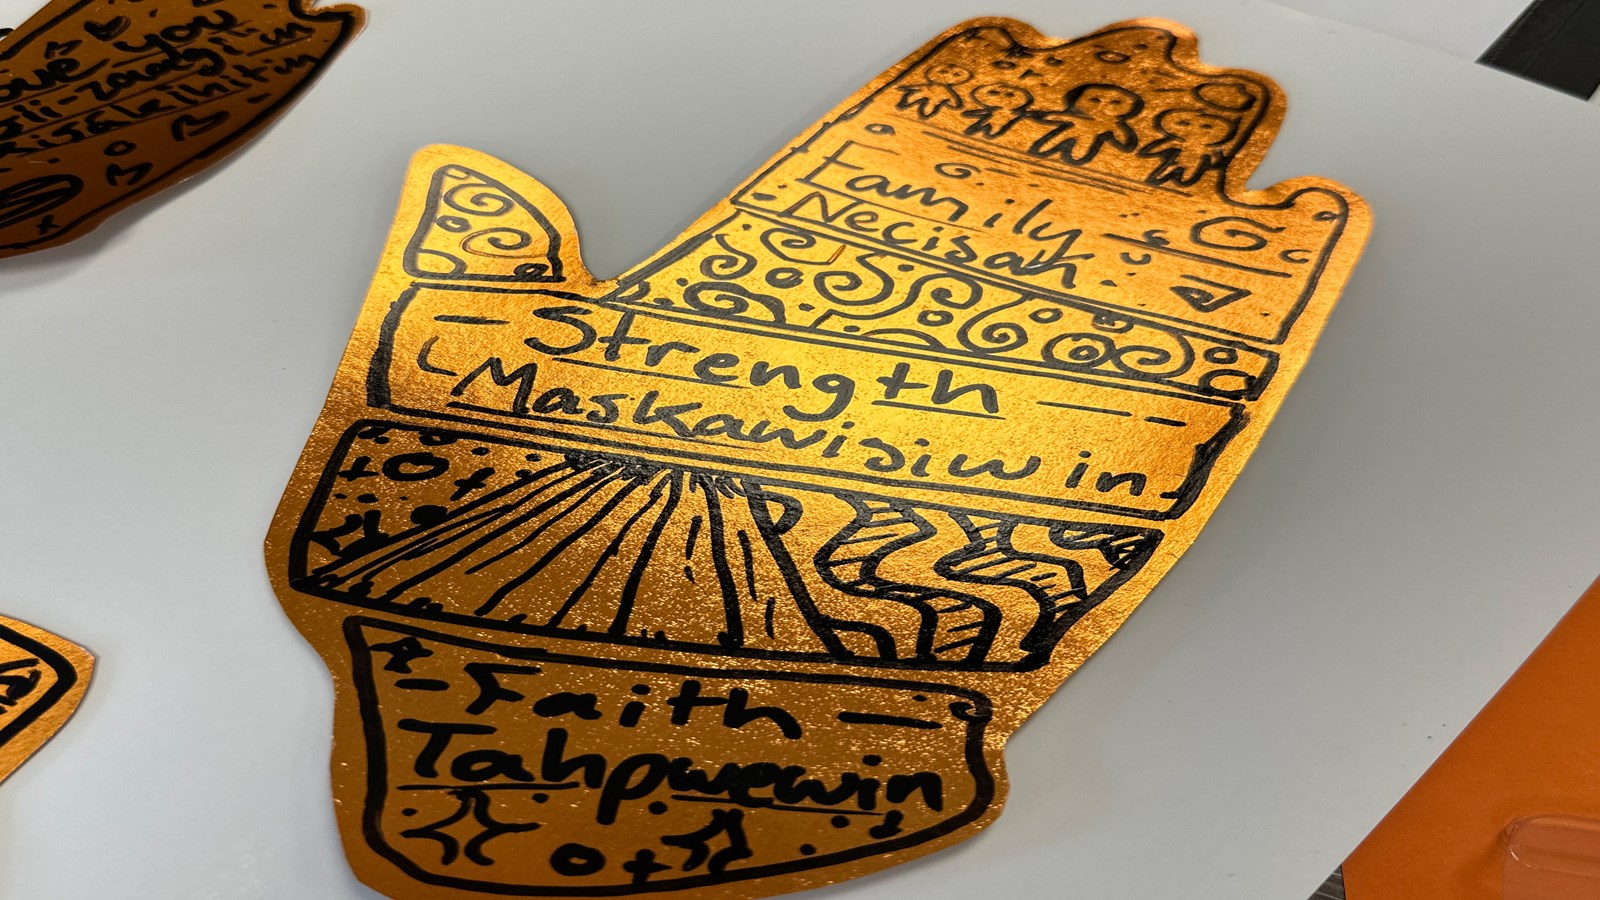 love you
Kisâkihitin
Family
Necisah
- Strength - -
Maskawisiwin
- Faith -
Tahpwewin